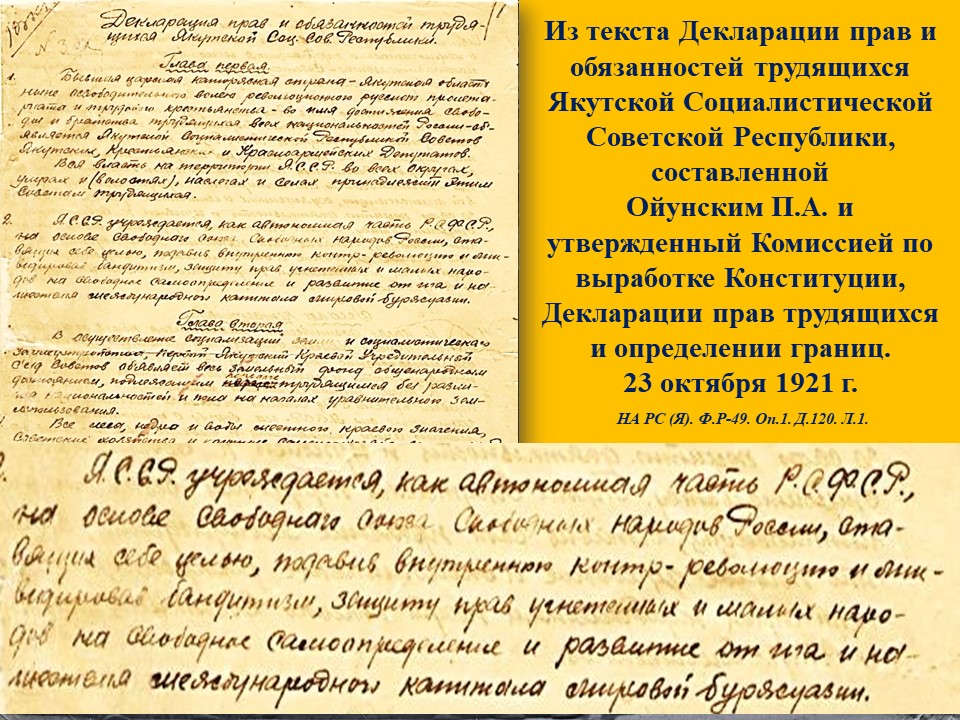 Декларация прав и обязанностей трудя-
щихся Якутской Соц. Сов. Республики.
Глава первая
1. Бывшая царская каторжная страна - Якутская область
ныне освободительною волею революционного русского проле-
риата и трудового крестьянства - во имя достижения свобо-
ды и братства трудящихся всех национальностей России - об-
является Якутской Социалистической Республикой Советов
Якутских, Крестьянских и Красноармейских Депутатов.
Вся власть на территории Я.С.С.Р. во всех округах,
улусах и (волостях), наслегах и селах принадлежит этим
Советам трудящихся.
2. Я.С.С.Р. учреждается, как автономная часть Р.С.Ф.С.Р.,
на основе свободнаго союза Свободных народов России, ста-
вящая себе целью, подавив внутреннюю контр-революцию и лик-
видировав бандитизм, защиту прав угнетенных и малых наро-
дов на свободное самоопределение и развитие от ига и на-
силия международного капитала мировой буржуазии.
Глава вторая
В осуществление социализации земли и социалистического
землеустройства, Первый Якутский Краевой Учредительный
Съезд Советов объявляет весь земельный фонд общенародным
достоянием, подлежащим трудящимся без разли-
чия национальностей и пола на началах уравнительного зем-
лепользования.
Все леса, недра и воды местного, краевого значения,
Из текста Декларации прав и
обязанностей трудящихся
Якутской Социалистической
Советской Республики,
составленной
Ойунским П.А. и
утвержденный Комиссией по
выработке Конституции,
Декларации прав трудящихся
и определении границ.
23 октября 1921 г.
НА РС (Я). Ф.Р-49. Оп.1. Д.120. Л.1.
Я.С.С.Р. учреждается, как автономная часть Р.С.Ф.С.Р.,
на основе свободнаго союза Свободных народов России, ста-
вящая себе целью, подавив внутреннюю контр-революцию и лик-
видировав бандитизм, защиту прав угнетенных и малых наро-
дов на свободное самоопределение и развитие от ига и на-
силия международного капитала мировой буржуазии.